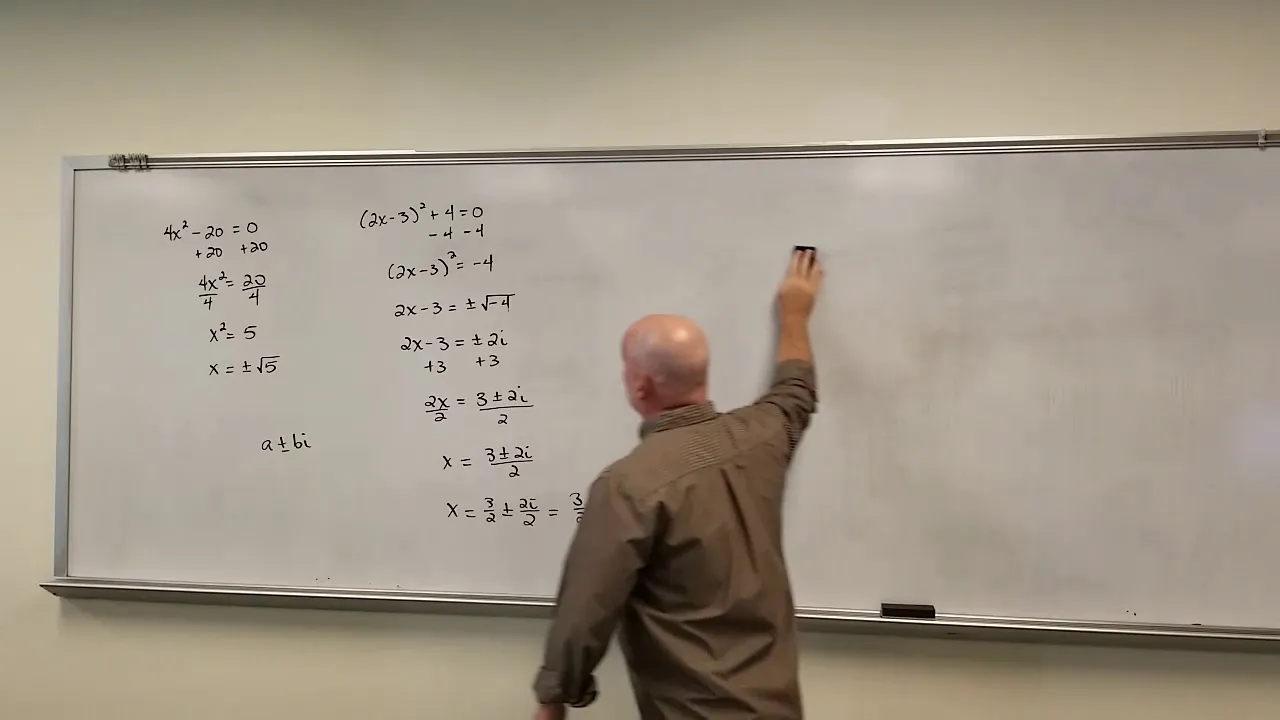 4x² - 20 = 0
+20 +20
4x²/4 = 20/4
x² = 5
x = ±√5
a ± bi
(2x-3)² + 4 = 0
-4 -4
(2x-3)² = -4
2x-3 = ±√-4
2x-3 = ±2i
+3 +3
2x/2 = 3±2i/2
x = 3±2i/2
x = 3/2 ± 2i/2 = 3